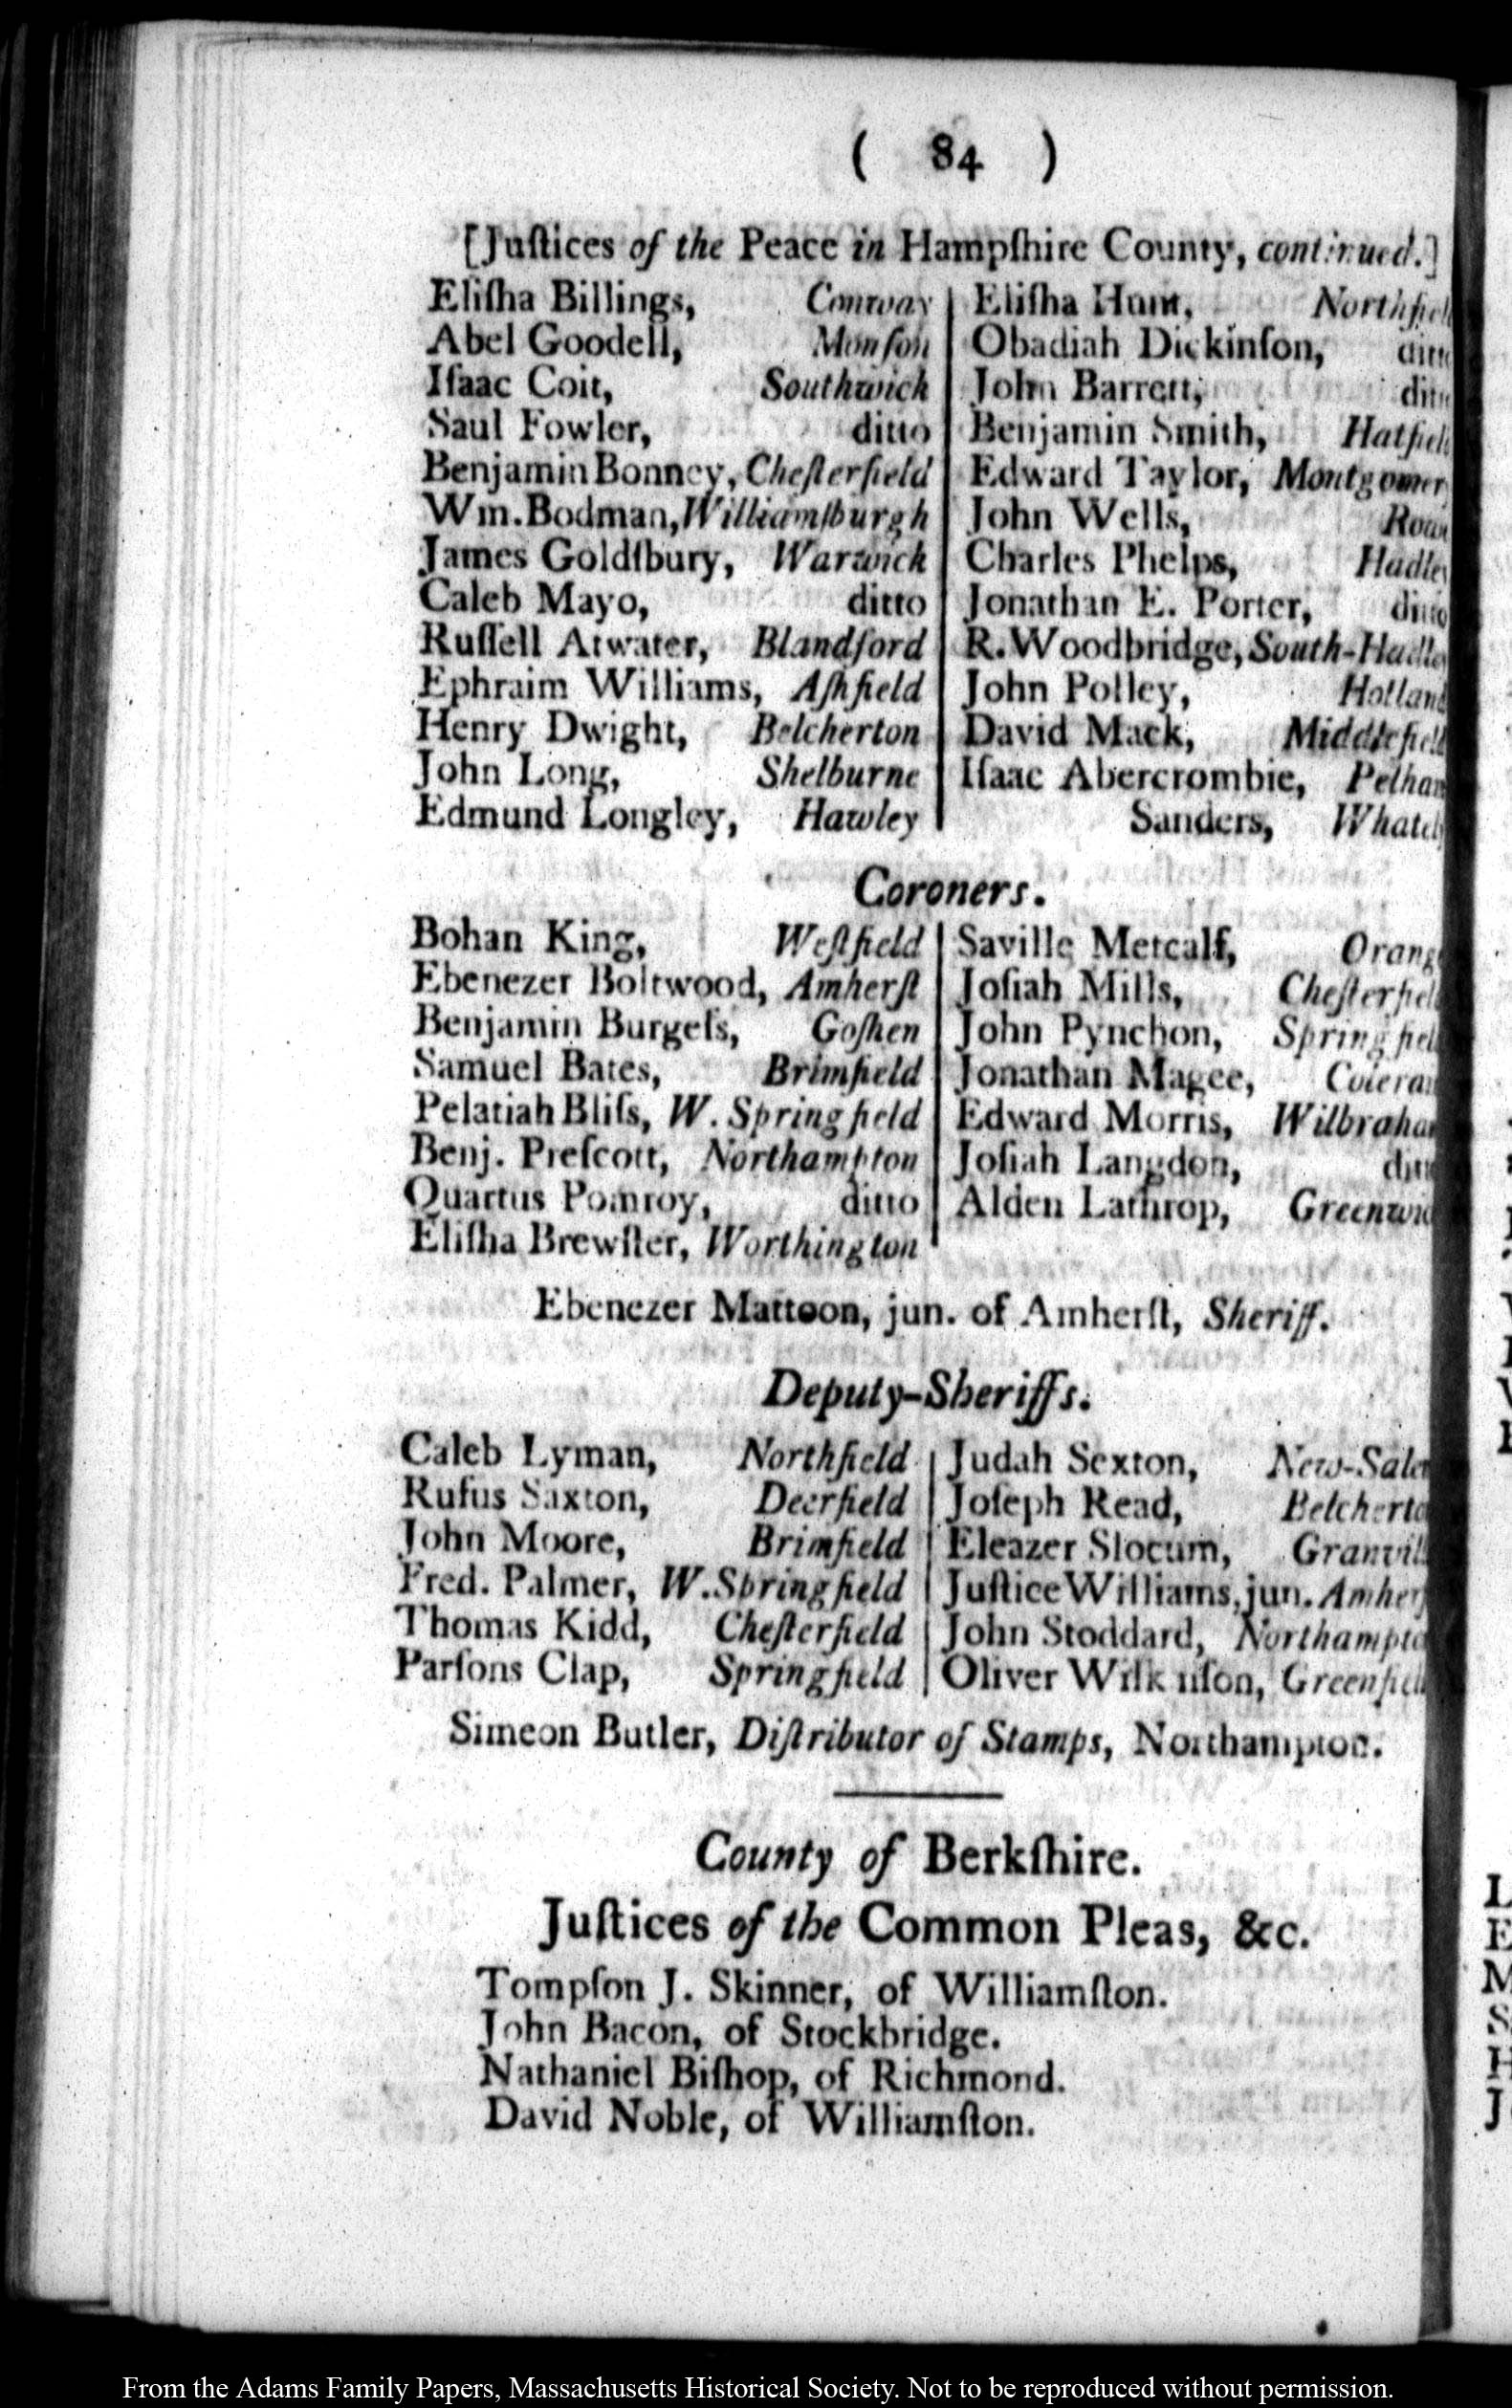 ( 84 )
[Juſtices of the Peace in Hampſhire County, continued.]
Eliſha Billings, Conway
Abel Goodell, Monſon
Iſaac Coit, Southwick
Saul Fowler, ditto
Benjamin Bonney, Cheſterfield
Wm. Bodman, Williamſburgh
James Goldſbury, Warwick
Caleb Mayo, ditto
Ruſſell Atwater, Blandford
Ephraim Williams, Aſhfield
Henry Dwight, Belcherton
John Long, Shelburne
Edmund Longley, Hawley
Eliſha Hunt, Northfiel
Obadiah Dickinſon, ditt
John Barrett, ditt
Benjamin Smith, Hatfiel
Edward Taylor, Montgomer
John Wells, Row
Charles Phelps, Hadle
Jonathan E. Porter, ditto
R. Woodbridge, South-Hadle
John Polley, Holland
David Mack, Middlefiel
Iſaac Abercrombie, Pelham
Sanders, Whatel
Coroners.
Bohan King, Weſtfield
Ebenezer Boltwood, Amherſt
Benjamin Burgeſs, Goſhen
Samuel Bates, Brimfield
Pelatiah Bliſs, W. Springfield
Benj. Preſcott, Northampton
Quartus Pomroy, ditto
Eliſha Brewſter, Worthington
Saville Metcalf, Orang
Joſiah Mills, Cheſterfiel
John Pynchon, Springfiel
Jonathan Magee, Colerai
Edward Morris, Wilbraham
Joſiah Langdon, ditt
Alden Lathrop, Greenwic
Ebenezer Mattoon, jun. of Amherſt, Sheriff.
Deputy-Sheriffs.
Caleb Lyman, Northfield
Rufus Saxton, Deerfield
John Moore, Brimfield
Fred. Palmer, W. Springfield
Thomas Kidd, Cheſterfield
Parſons Clap, Springfield
Judah Sexton, New-Sale
Joſeph Read, Belcherto
Eleazer Slocum, Granvill
Juſtice Williams, jun. Amherſ
John Stoddard, Northampto
Oliver Wilkinſon, Greenfiel
Simeon Butler, Diſtributor of Stamps, Northampton.
County of Berkſhire.
Juſtices of the Common Pleas, &c.
Tompſon J. Skinner, of Williamſton.
John Bacon, of Stockbridge.
Nathaniel Biſhop, of Richmond.
David Noble, of Williamſton.
From the Adams Family Papers, Massachusetts Historical Society. Not to be reproduced without permission.